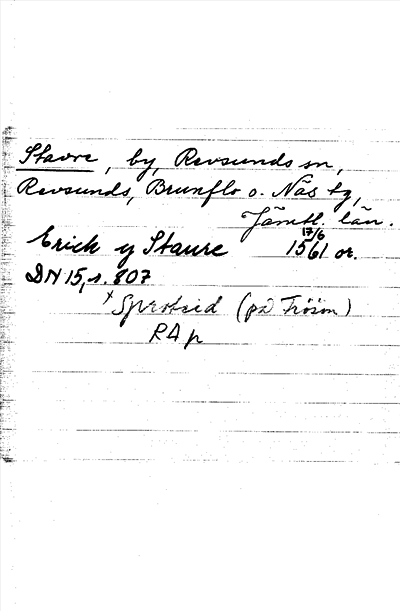 Stavre, by, Revsunds sn,
Revsunds, Brunflo o. Näs tg,
Jämtl. län.
Erick y Staure 17/6 1561 or.
DN 15, s. 807
(på Frösön)
RA p